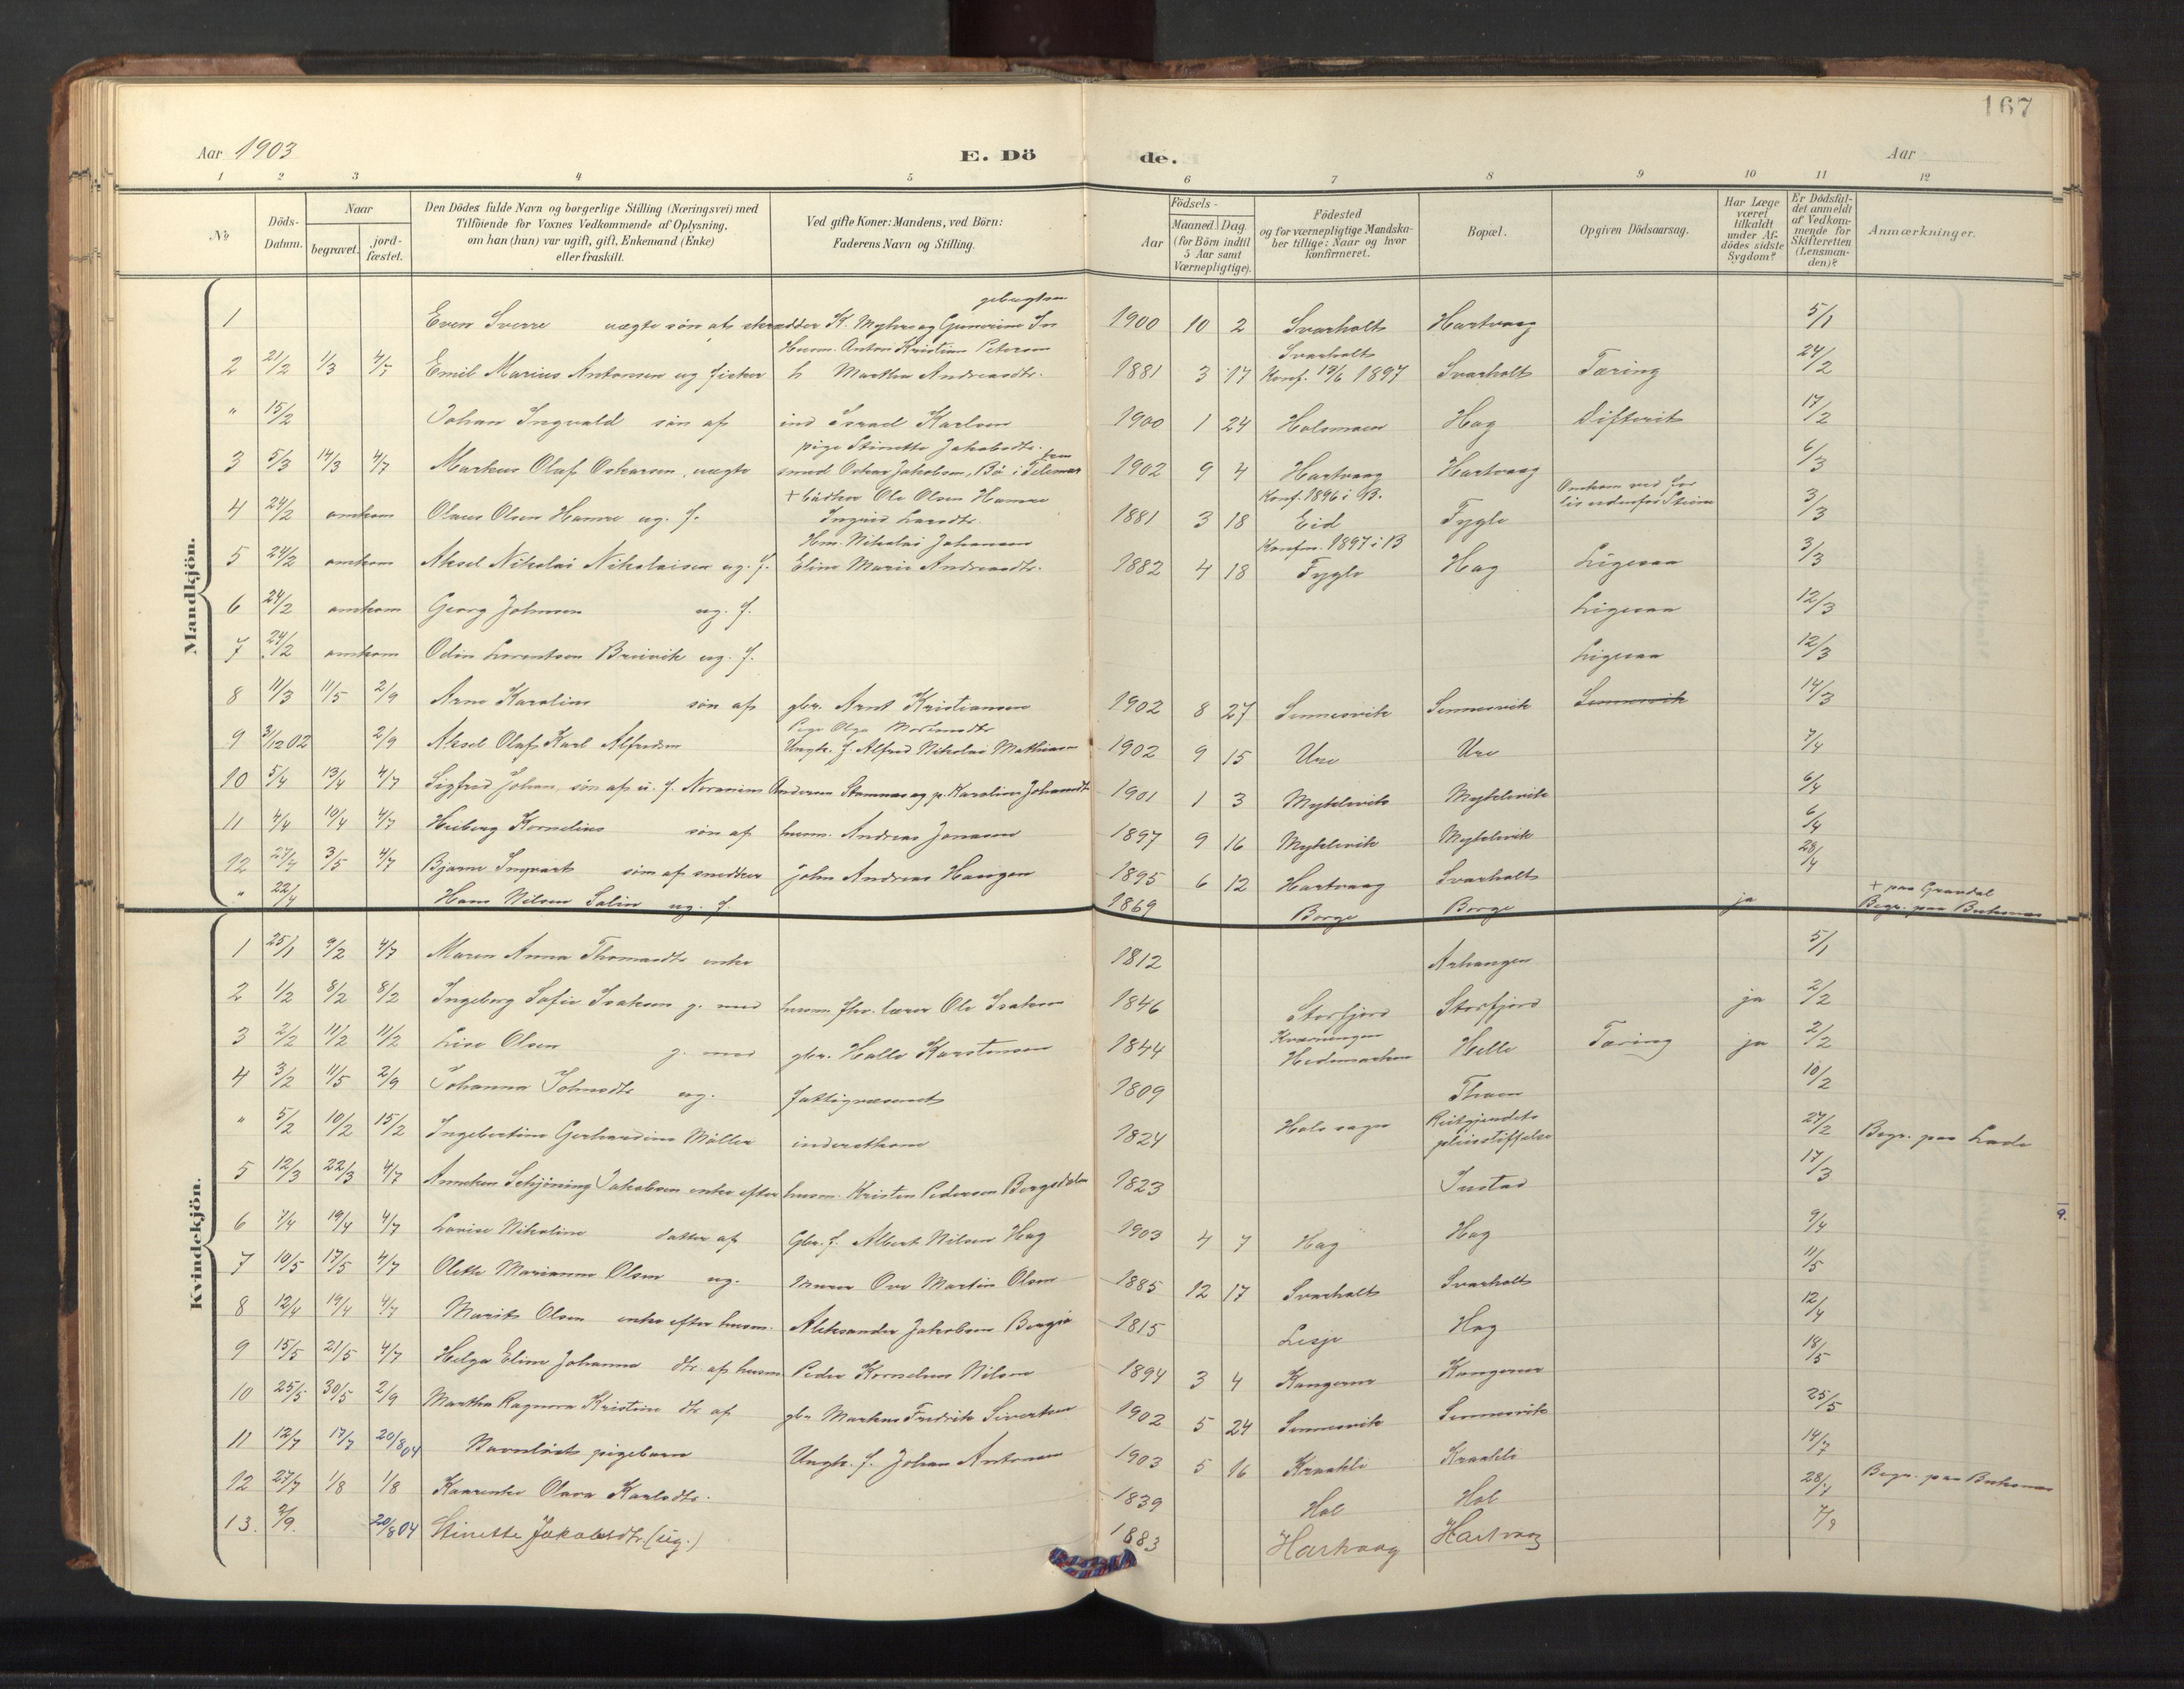 167
Aar 1903
E. Dö
de.
Aar
1 2 3 4 5 6 7 8 9 10 11 12
No
Döds-Datum.
Naar
begravet.
jord-fæstet.
Den Dödes fulde Navn og borgerlige Stilling (Næringsvei) med
Tilföiende for Voxnes Vedkommende af Oplysning,
om han (hun) var ugift, gift, Enkemand (Enke)
eller fraskilt.
Ved gifte Koner: Mandens, ved Börn:
Faderens Navn og Stilling.
Födsels-
Aar
Maaned. Dag.
(for Börn indtil
5 Aar samt
Værnepligtige).
Födested
og for værnepligtige Mandska-
ber tillige: Naar og hvor
konfirmeret.
Bopæl.
Opgiven Dödsaarsag.
Har Læge
været
tilkaldt
under Af-
dödes sidste
Sygdom?
Er Dödsfal-
det anmeldt
af Vedkom-
mende for
Skifteretten
(Lensman-
den)?
Anmærkninger.
Mandkjön.
1 Even Sverre uægte sön af skrædder K. Myhre og 1900 10 2 Svarholt Hartvaag 5/1
Husm. Anton Kristian Peterson Svarholt
2 21/2 1/3 4/7 Emil Marius Antonsen ug fisker h Martha Andreasdtr. 1881 3 17 Konf. 1897 Svarholt Tæring 24/2
" 15/2 Johan Ingvald sön af ind Israel Karlsen 1900 1 24 Holsmoen Hag Difterit 17/2
pige Stinette Jakobsdtr.
3 5/3 14/3 4/7 Markus Olaf Oskarsen, uægte smed Oskar Jakobsen, Bö i Telemar 1902 9 4 Hartvaag Hartvaag 6/3
+ bödker Ole Olsen Hamre Konf. 1896 i B. Omkom ved for
4 24/2 omkom Olaus Olsen Hamre ug. f. Ingrid Larsdtr. 1881 3 18 Eid Fygle lis udenfor Steine 3/3
Hm. Nikolai Johansen Konfm. 1897 i B
5 24/2 omkom Aksel Nikolai Nikolaisen ug. f. Eline Marie Andreasdtr. 1882 4 18 Fygle Hag Ligesaa 3/3
6 24/2 omkom Georg Johnsen ug. f. Ligesaa 12/3
7 24/2 omkom Odin Lorentsen Breivik ug. f. Ligesaa 12/3
8 11/3 11/5 2/9 Arne Karolius sön af gbr. Arnt Kristiansen 1902 8 27 Sennesvik Sennesvik Sennesvik 14/3
9 31/12 02 2/9 Aksel Olaf Karl Alfredsen Ungk. f Alfred Nikolai Mathisen 1902 9 15 Ure Ure 7/4
10 5/4 13/4 4/7 Sigfred Johan, sön af u. f. Andersen Stamnes og p. Karoline Johansdtr 1901 1 3 Myklevik Myklevik 6/4
11 4/4 10/4 4/7 Heiberg Kornelius sön af husm. Andreas Jonasen 1897 9 16 Myklevik Myklevik 6/4
12 27/4 3/5 4/7 Bjarne Ingvart sön af snedker John Andreas Haugen 1895 6 12 Hartvaag Svarholt 28/4
" 22/4 Hans Nilsen Salin ug. f. 1869 Borge Borge ja + paa Gravdal
Begr. paa Buksnes
Kvindekjön.
1 25/1 9/2 4/7 Maren Anna Thomasdtr enke 1812 Arhaugen 5/1
2 1/2 8/2 8/2 Ingeborg Sofie Isaksen g. med husm. fhv. lærer Ole Isaksen 1846 Storfjord Storfjord ja 2/2
3 2/2 11/2 11/2 Lise Olsen g. med gbr. Halle Karstensen 1844 Hedemarken Helle Tæring ja 2/2
4 3/2 11/5 2/9 Johanna Johnsdtr ug. fattigvæsenet 1809 10/2
" 5/2 10/2 15/2 Ingebertine Gerhardine Möller inderstkone 1824 Hols sogn Reitgjerdets pleiestiftelse 27/2 Begr. paa Lade
5 12/3 22/3 4/7 Anneken Schjöning Jakobsen enke efter husm. Kristen Pedersen Bergsdalen 1823 Justad 17/3
6 7/4 19/4 4/7 Lovise Nikoline datter af Gbr. f. Albert Nilsen Hag 1903 4 7 Hag Hag 9/4
7 10/5 17/5 4/7 Olette Marianne Olsen ug. murer Ove Martin Olsen 1885 12 17 Svarholt Svarholt 11/5
8 12/4 19/4 4/7 Marit Olsen enke efter husm. Aleksander Jakobsen 1815 Lesje Hag 12/4
9 15/5 21/5 4/7 Helga Eline Johanna dtr af husm. Peder Kornelius Nilsen 1894 3 4 Kangerne Kangerne 18/5
10 25/5 30/5 2/9 Martha Ragnora Kristine dtr af gbr. Markus Fredrik Sivertsen 1902 5 24 Sennesvik Sennesvik 25/5
11 12/7 17/7 20/8 04 Navnlöst pigebarn Ungk. f. Johan Antonsen 1903 5 16 Kraakli Kraakli 14/7
12 27/7 1/8 1/8 Olava Karlsdtr. 1839 Hol Hol 28/7 Begr. paa Buksnes
13. 2/9. 20/8 04 Stinette Jakobsdtr. (ug.) 1883 Hartvaag Hartvaag 7/9
9.